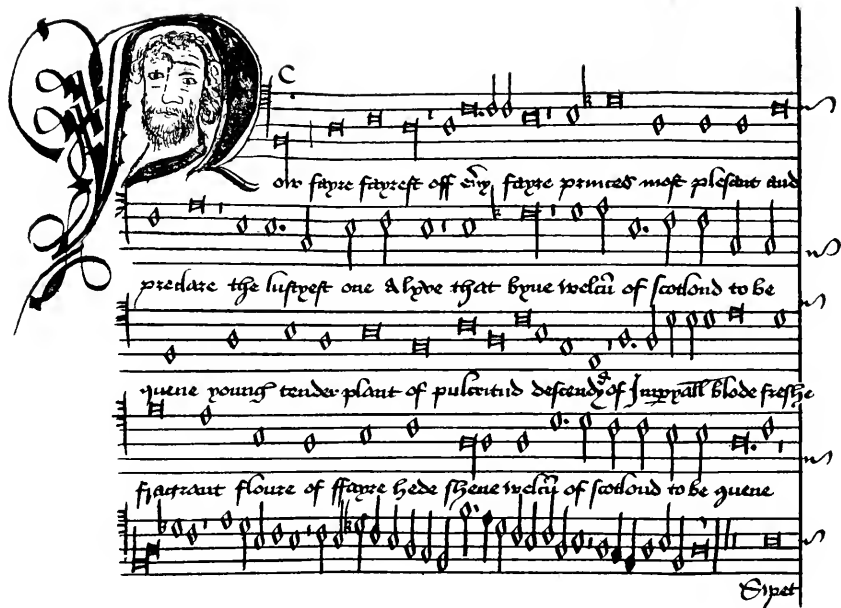 Now fayre fayrest off eűy fayre princes most plesant and
preclare the lustyest one alyve that byne welcū of scotlond to be
quene young tender plant of pulcritud descendyd of Imꝑyall blode freshe
fragrant floure of ffayre hede shene welcū of scotlond to be quene